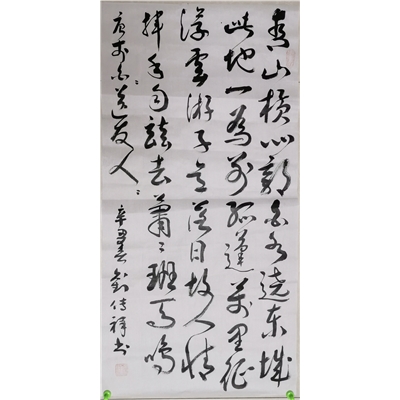 青山横北郭白水遶东城
此地一為别孤蓬萬里征
浮雲游子意落日故人情
挥手自兹去蕭〻班马鸣
唐李白送友人
辛丑春劉传祥书